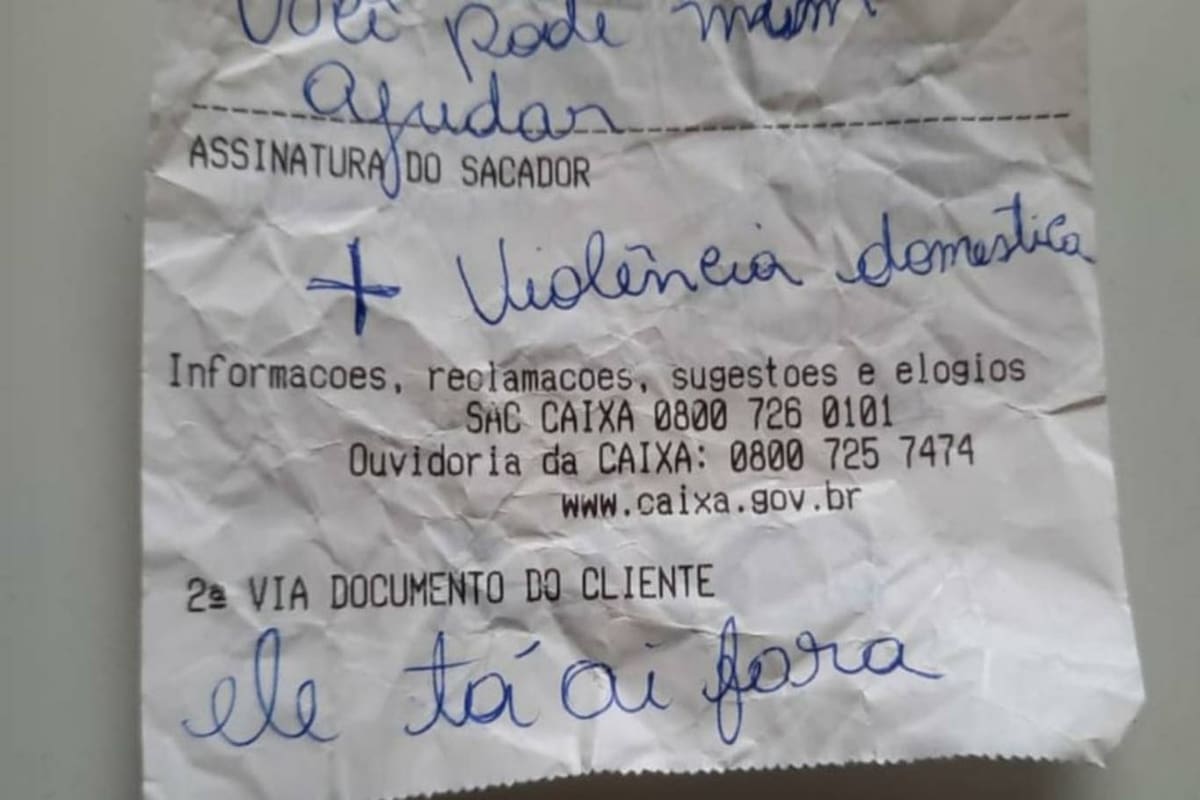 Você pode mim
ajudar
ASSINATURA DO SACADOR
+ Violência domestica
Informacoes, reclamacoes, sugestoes e elogios
SAC CAIXA 0800 726 0101
Ouvidoria da CAIXA: 0800 725 7474
www.caixa.gov.br
2ª VIA DOCUMENTO DO CLIENTE
ele tá ai fora